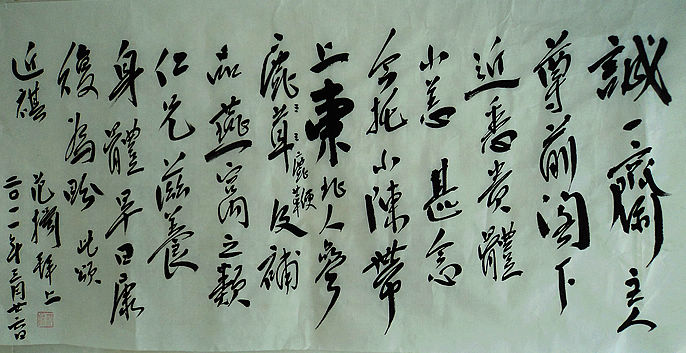 誠一齋主人
尊前閣下
近悉貴體
小恙甚念
今托小陳帶
上東北人參
鹿茸鹿鞭及補
品燕窩之類
仁兄滋養
身體早日康
復為盼此頌
近祺
范拜上
二〇一一年三月廿六日